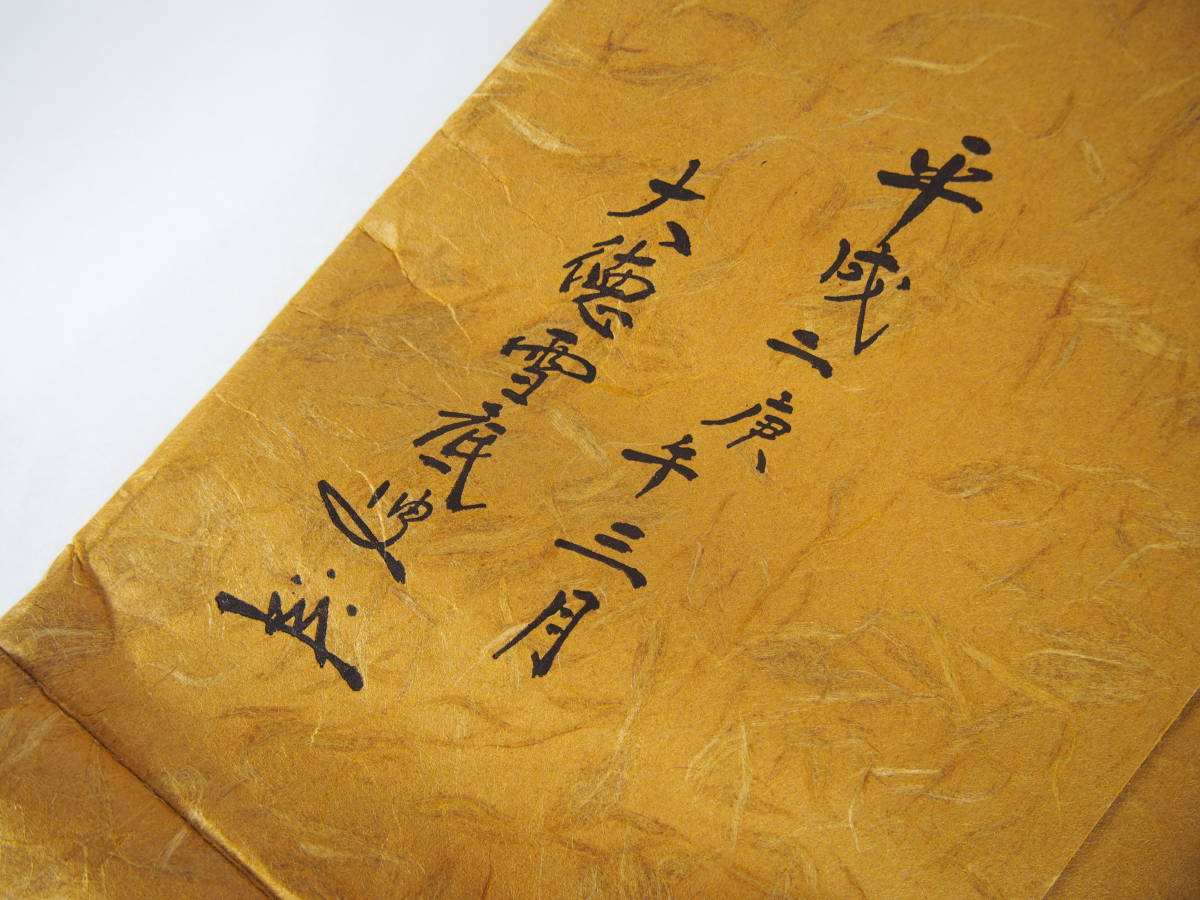 平成二庚午三月
大徳雪底